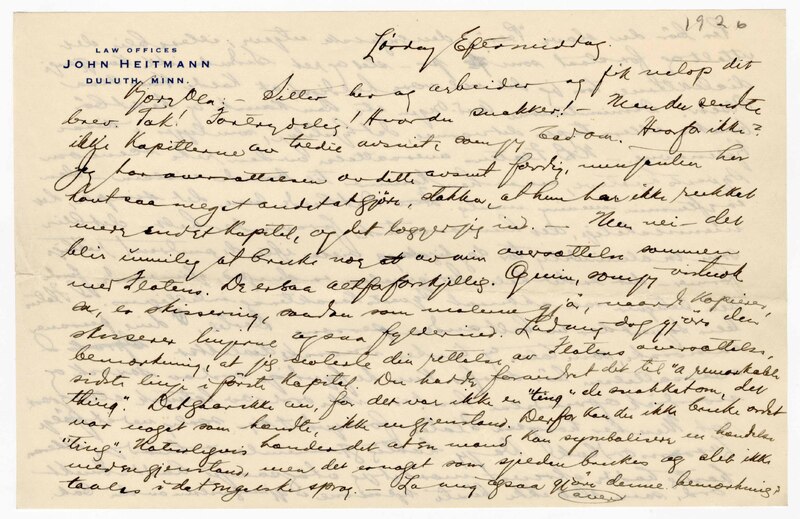 1926
LAW OFFICES
JOHN HEITMANN
DULUTH, MINN.
Lørdag Eftermiddag.
Kjære Ola: – Sitter her og arbeider og fik netop det
brev. Tak! Fortrydelig! Hvor du snakker! – Men du sendte
ikke Kapitlerne av tredie avsnit, som jeg bad om. Hvorfor ikke?
Jeg har oversættelsen av dette avsnit færdig, men
hat saa meget andet at gjøre, at hun har ikke rukket
mere end et Kapitel, og det lægger jeg ind. – Men nei – det
blir umulig at bruke nog av min oversættelse sammen
med Flatens. De er saa altfor forskjellig. Og min, som jeg
er skissering, som malerne gjør, naar de
skisserer linjerne ogsaa fylder ind. Lad mig dog gjøre den
bemerkning, at jeg din rettelse av Flatens oversættelse,
sidste linje i første Kapitel. Du hadde forandret det til "a remarkable
thing". Det gaar ikke an, for det var ikke en "ting" de snakket om, det
var noget som hændte, ikke en gjenstand. Derfor kan du ikke bruke ordet
"ting". Naturligvis hænder det at en mand kan symbolisere en handelse
med en gjenstand, men det er noget som sjelden brukes og slet ikke
taales i det engelske sprog. – La mig ogsaa gjøre denne bemerkning: